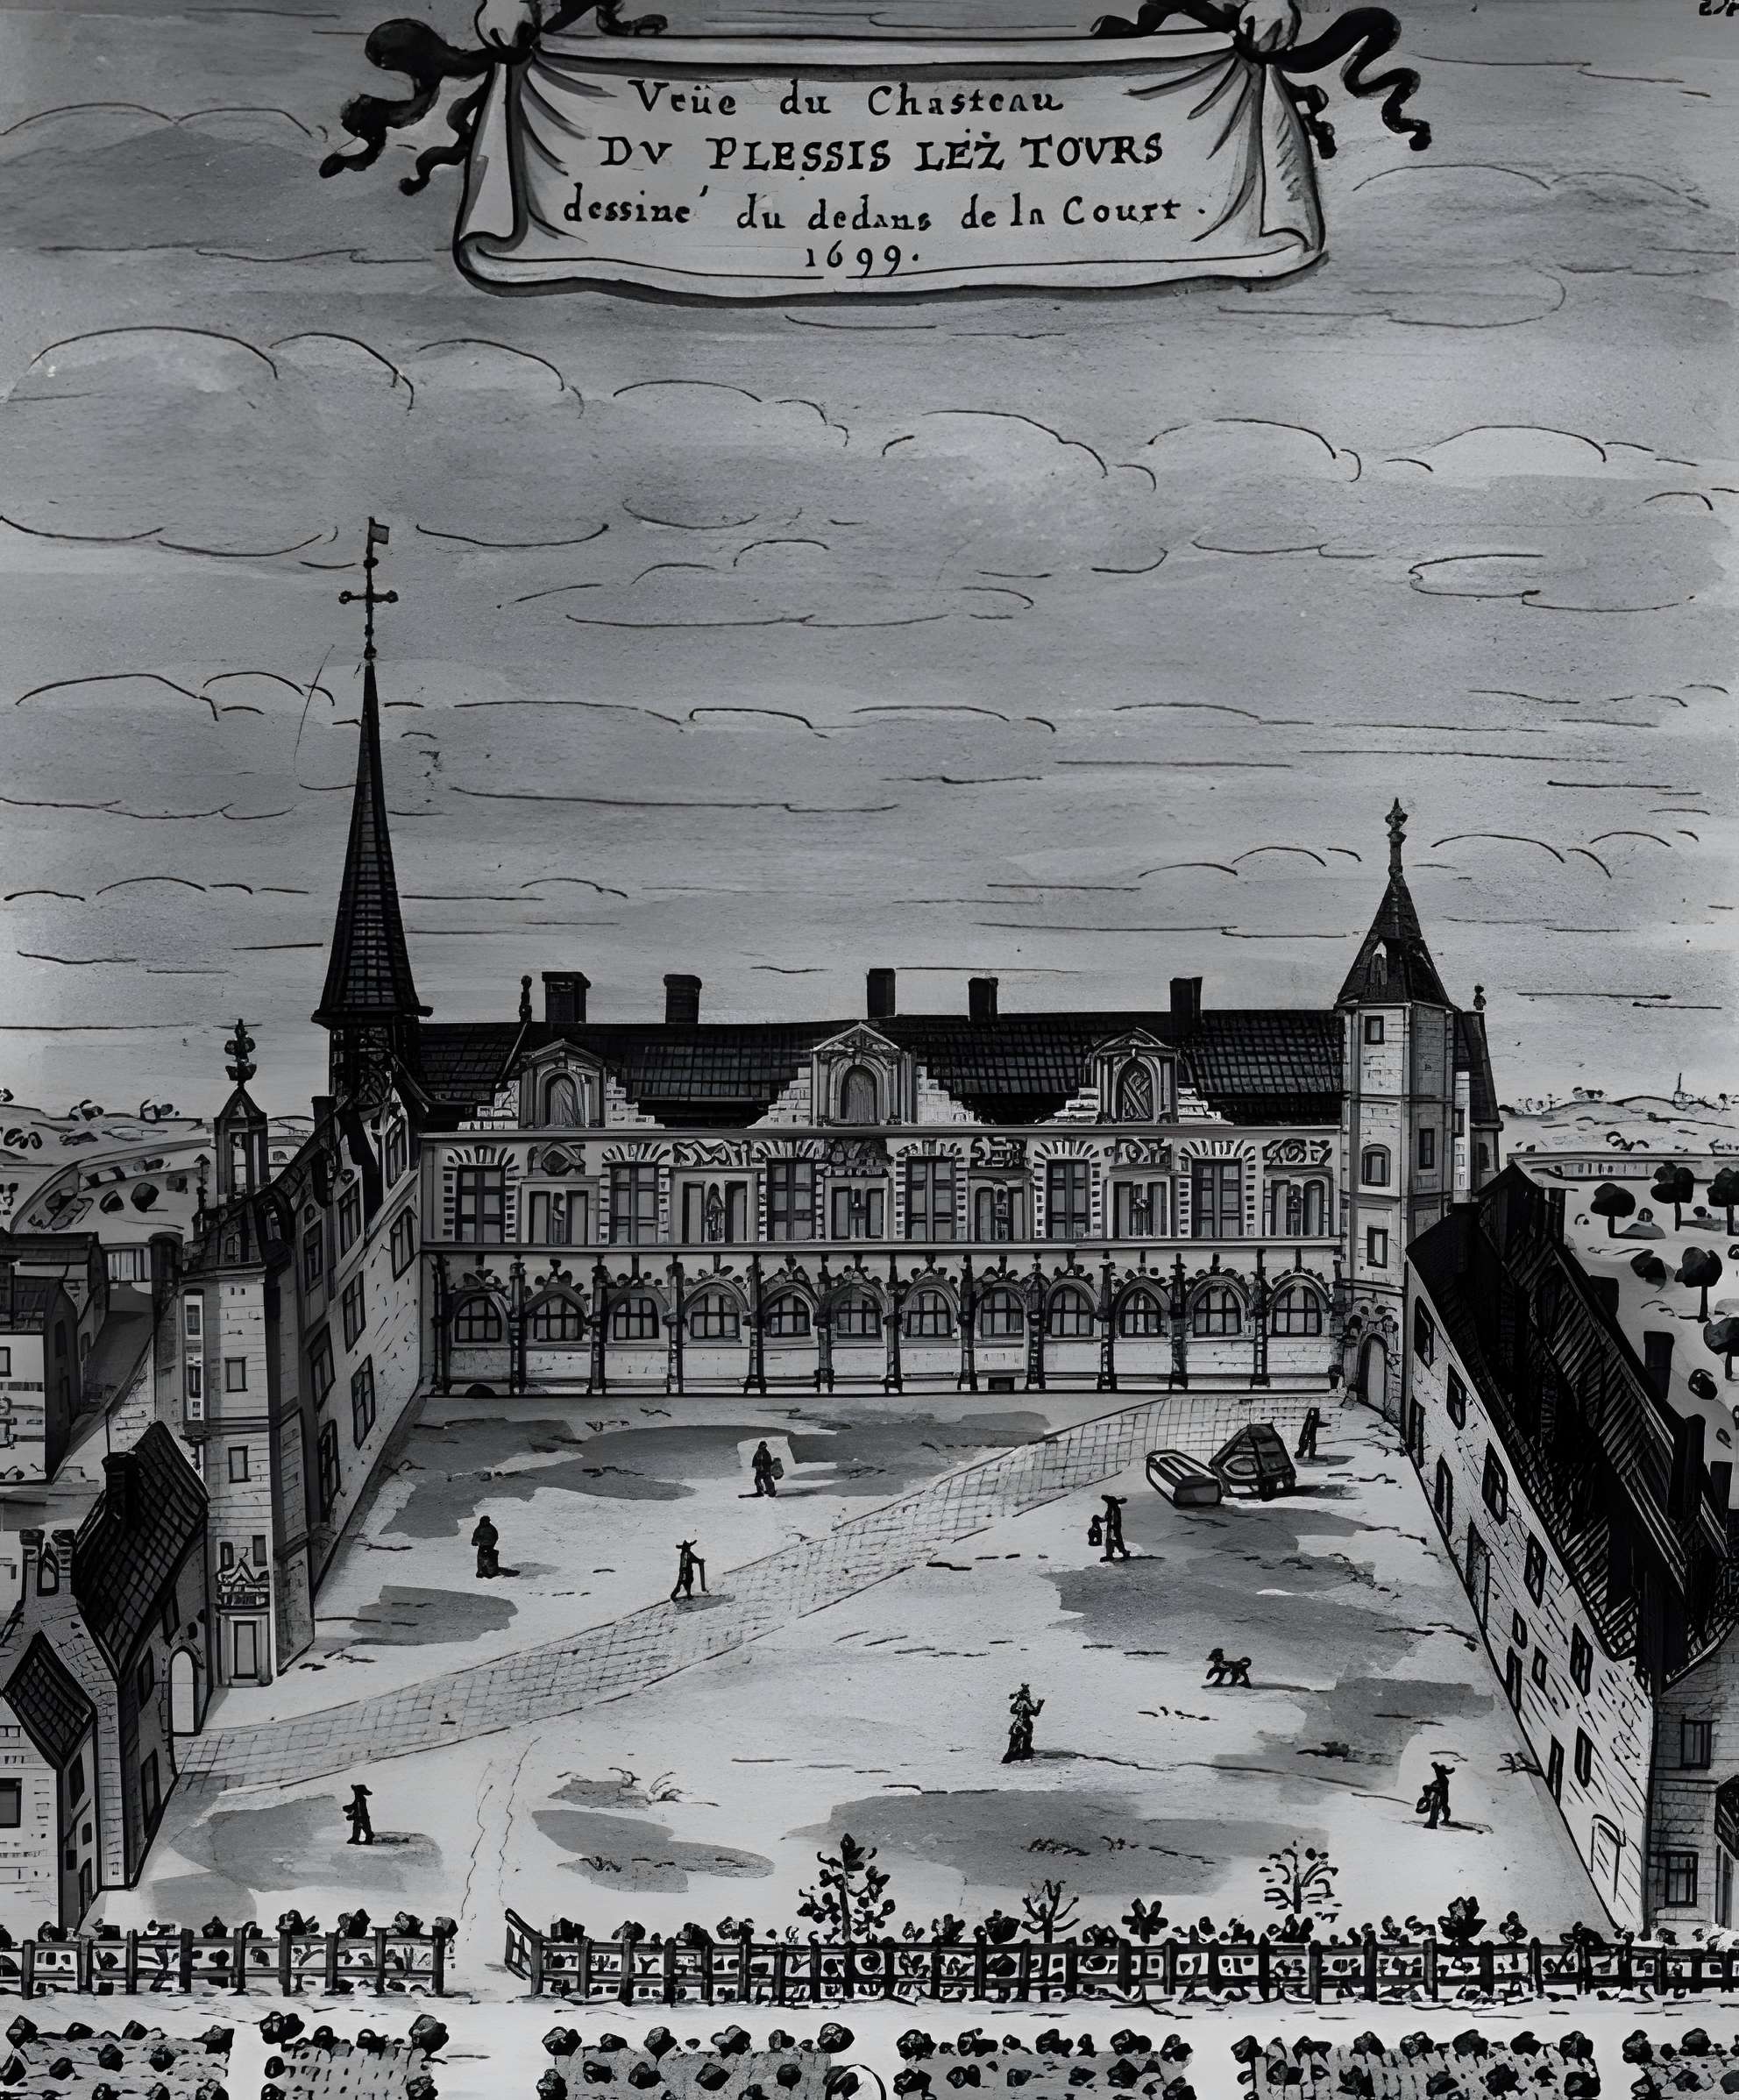 Veüe du Chasteau
DV PLESSIS LEŻ TOVRS
dessine' du dedans de la Court.
1699.